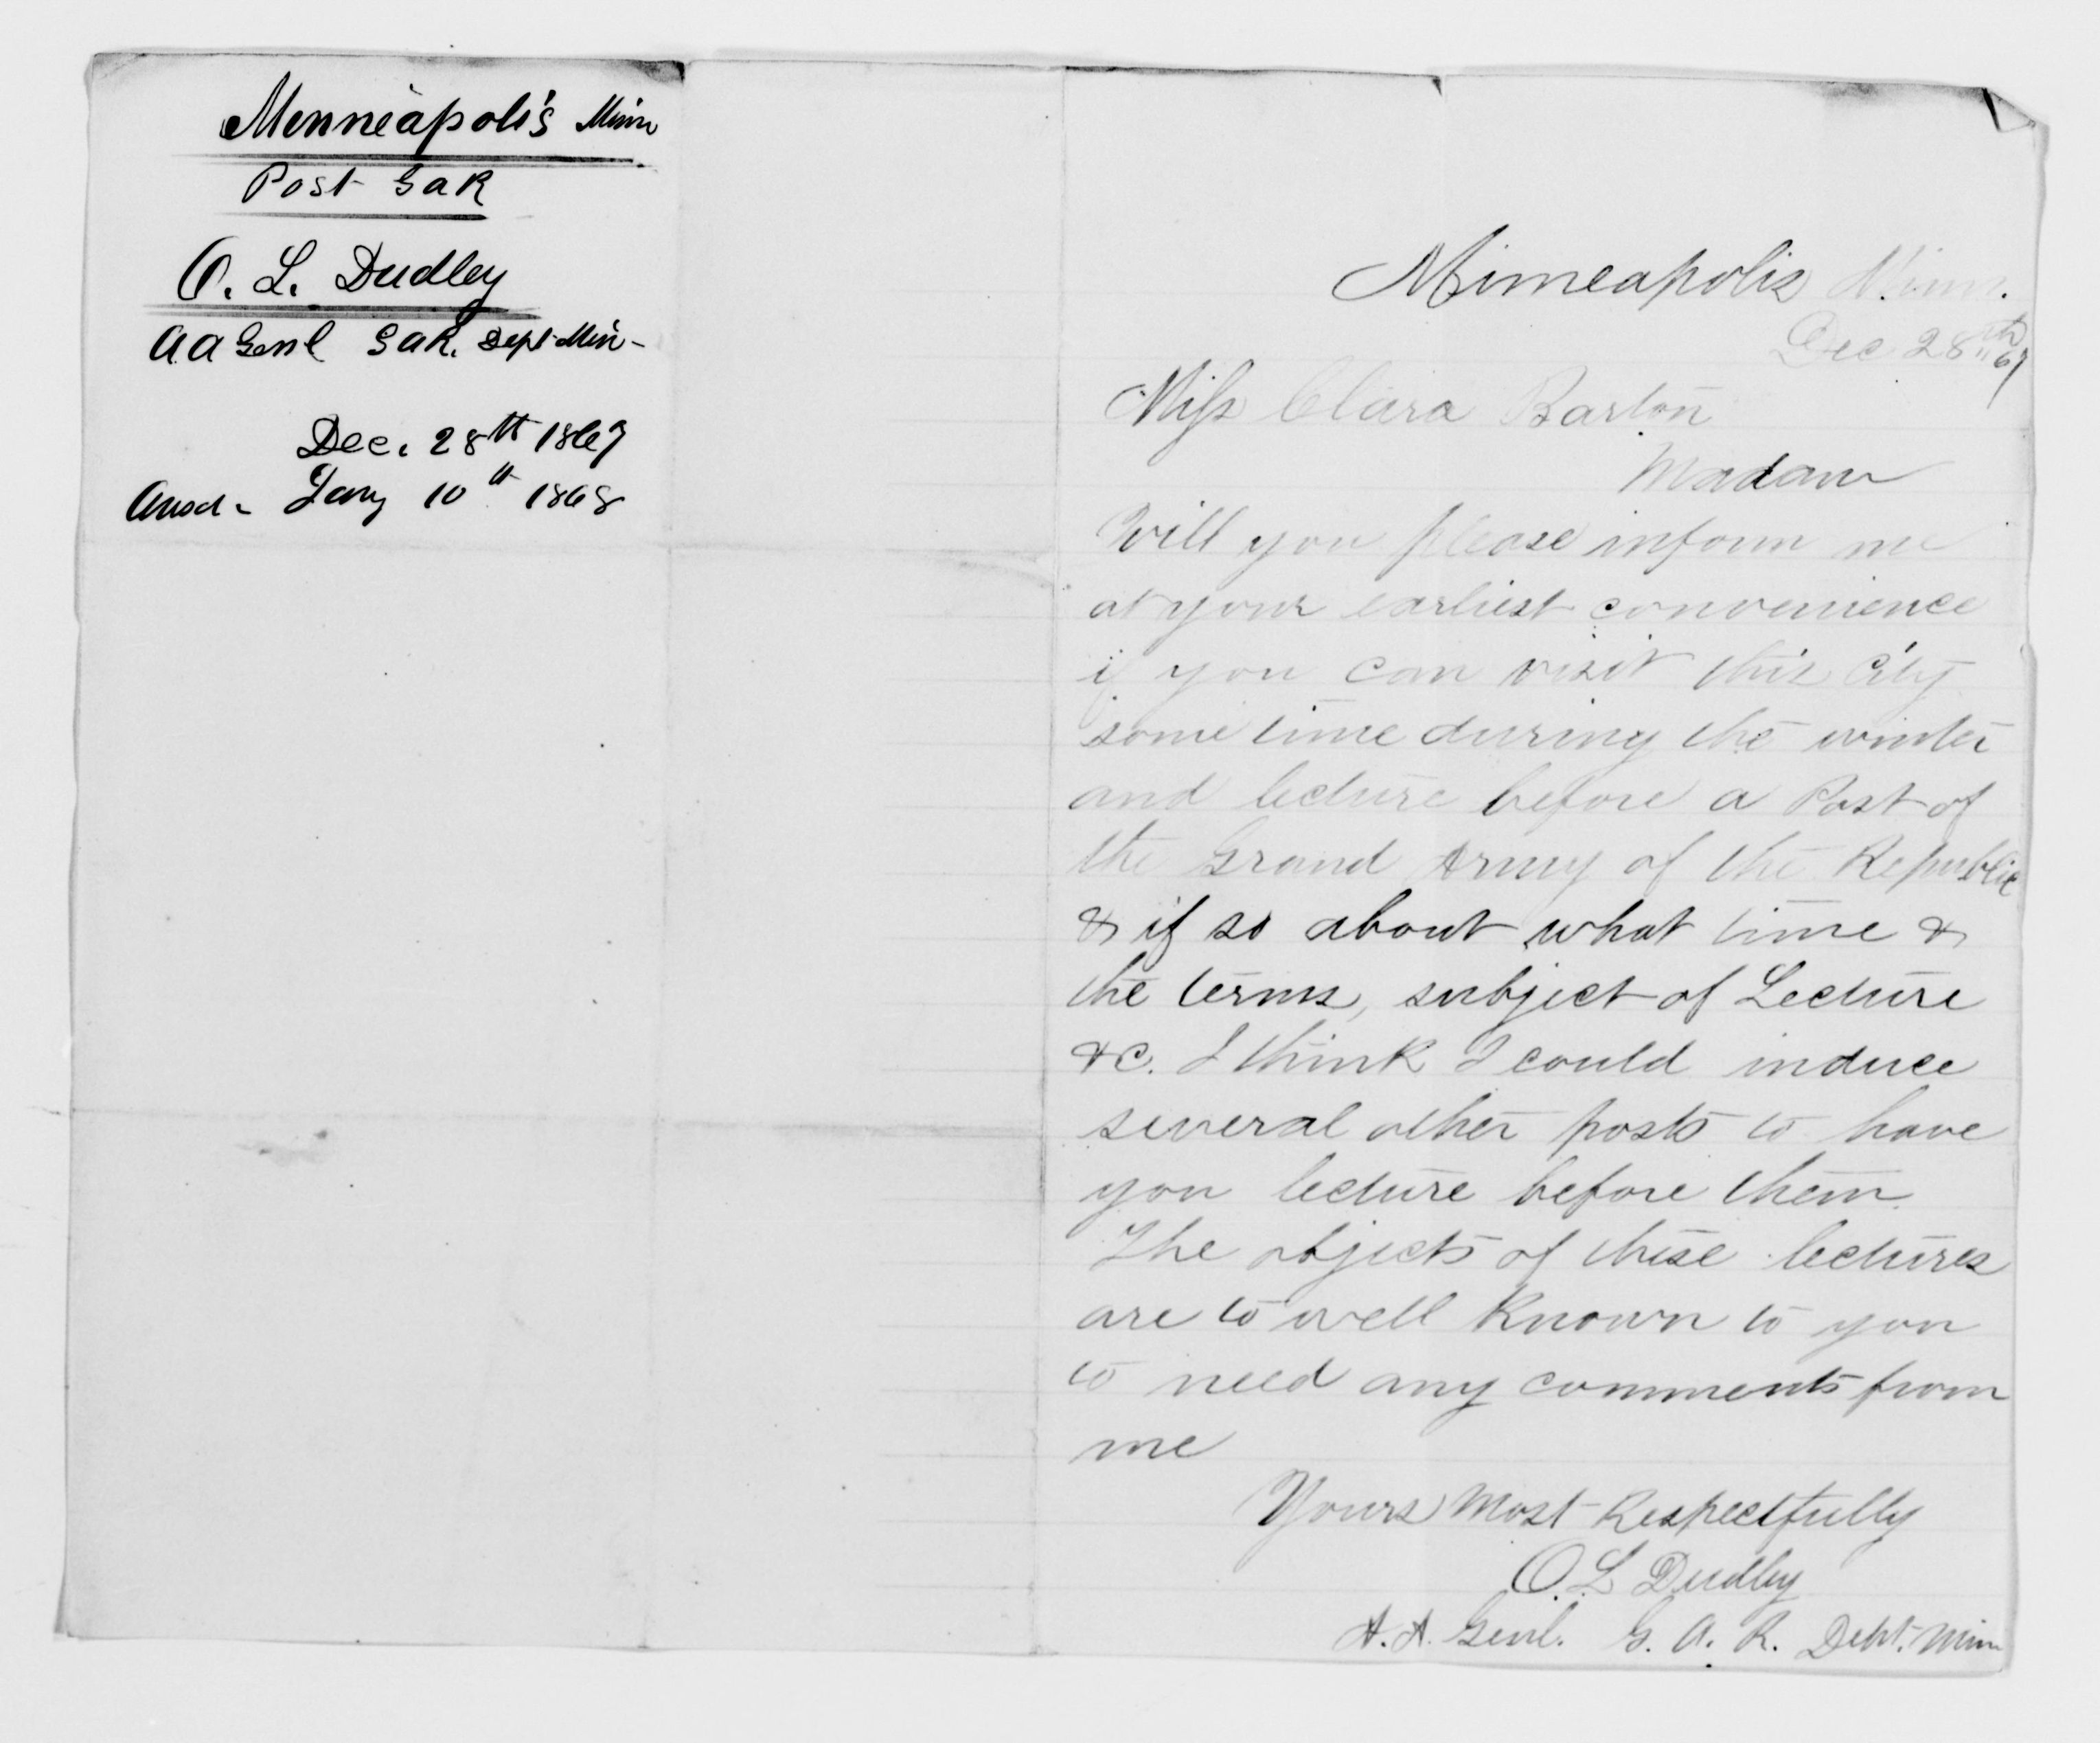 Menneapolis Minn
Post GAR
O. L. Dudley
A A Genl GAR. Dept Min-
Dec. 28th 1867
Ansd - Jany 10th 1868
Minneapolis Minn.
Dec 28th 67
Miss Clara Barton
Madam
Will you please inform me
at your earliest convenience
if you can visit this City
some time during the winter
and lecture before a Post of
the Grand Army of the Republic
& if so about what time &
the terms, subject of Lecture
&c. I think I could induce
several other posts to have
you lecture before them.
The objects of these lectures
are to well known to you
to need any comments from
me
Yours Most Respectfully
O. L Dudley
A. A. Genl. G. A. R. Dept. Minn